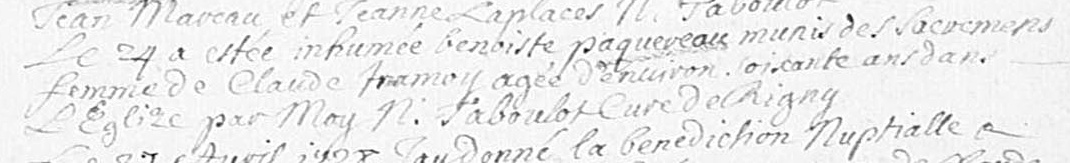 Jean Mareau et Jeanne Laplaces N. Taboulot
Le 24 a estée inhumée benoiste paquereau munis des sacremens
femme de Claude tramoy agée d'environ soisante ans dans
L'Eglize par Moy N. Taboulot Cure de Rigny
Le 27 Avril 1728 Jay donné la benediction Nuptialle a